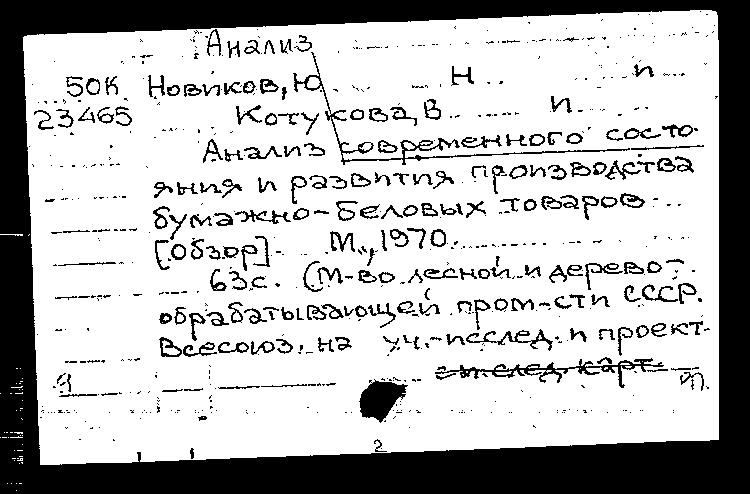 Анализ
50К Новиков, Ю Н п
23465 Котукова, В И
Анализ современного состо-
яния и развития производства
бумажно-беловых товаров
[Обзор]. М., 1970.
63с. (М-во лесной и дерево-
обрабатывающей пром-сти СССР.
Всесоюз. на уч.-исслед. и проект-
см. след. карт.
2